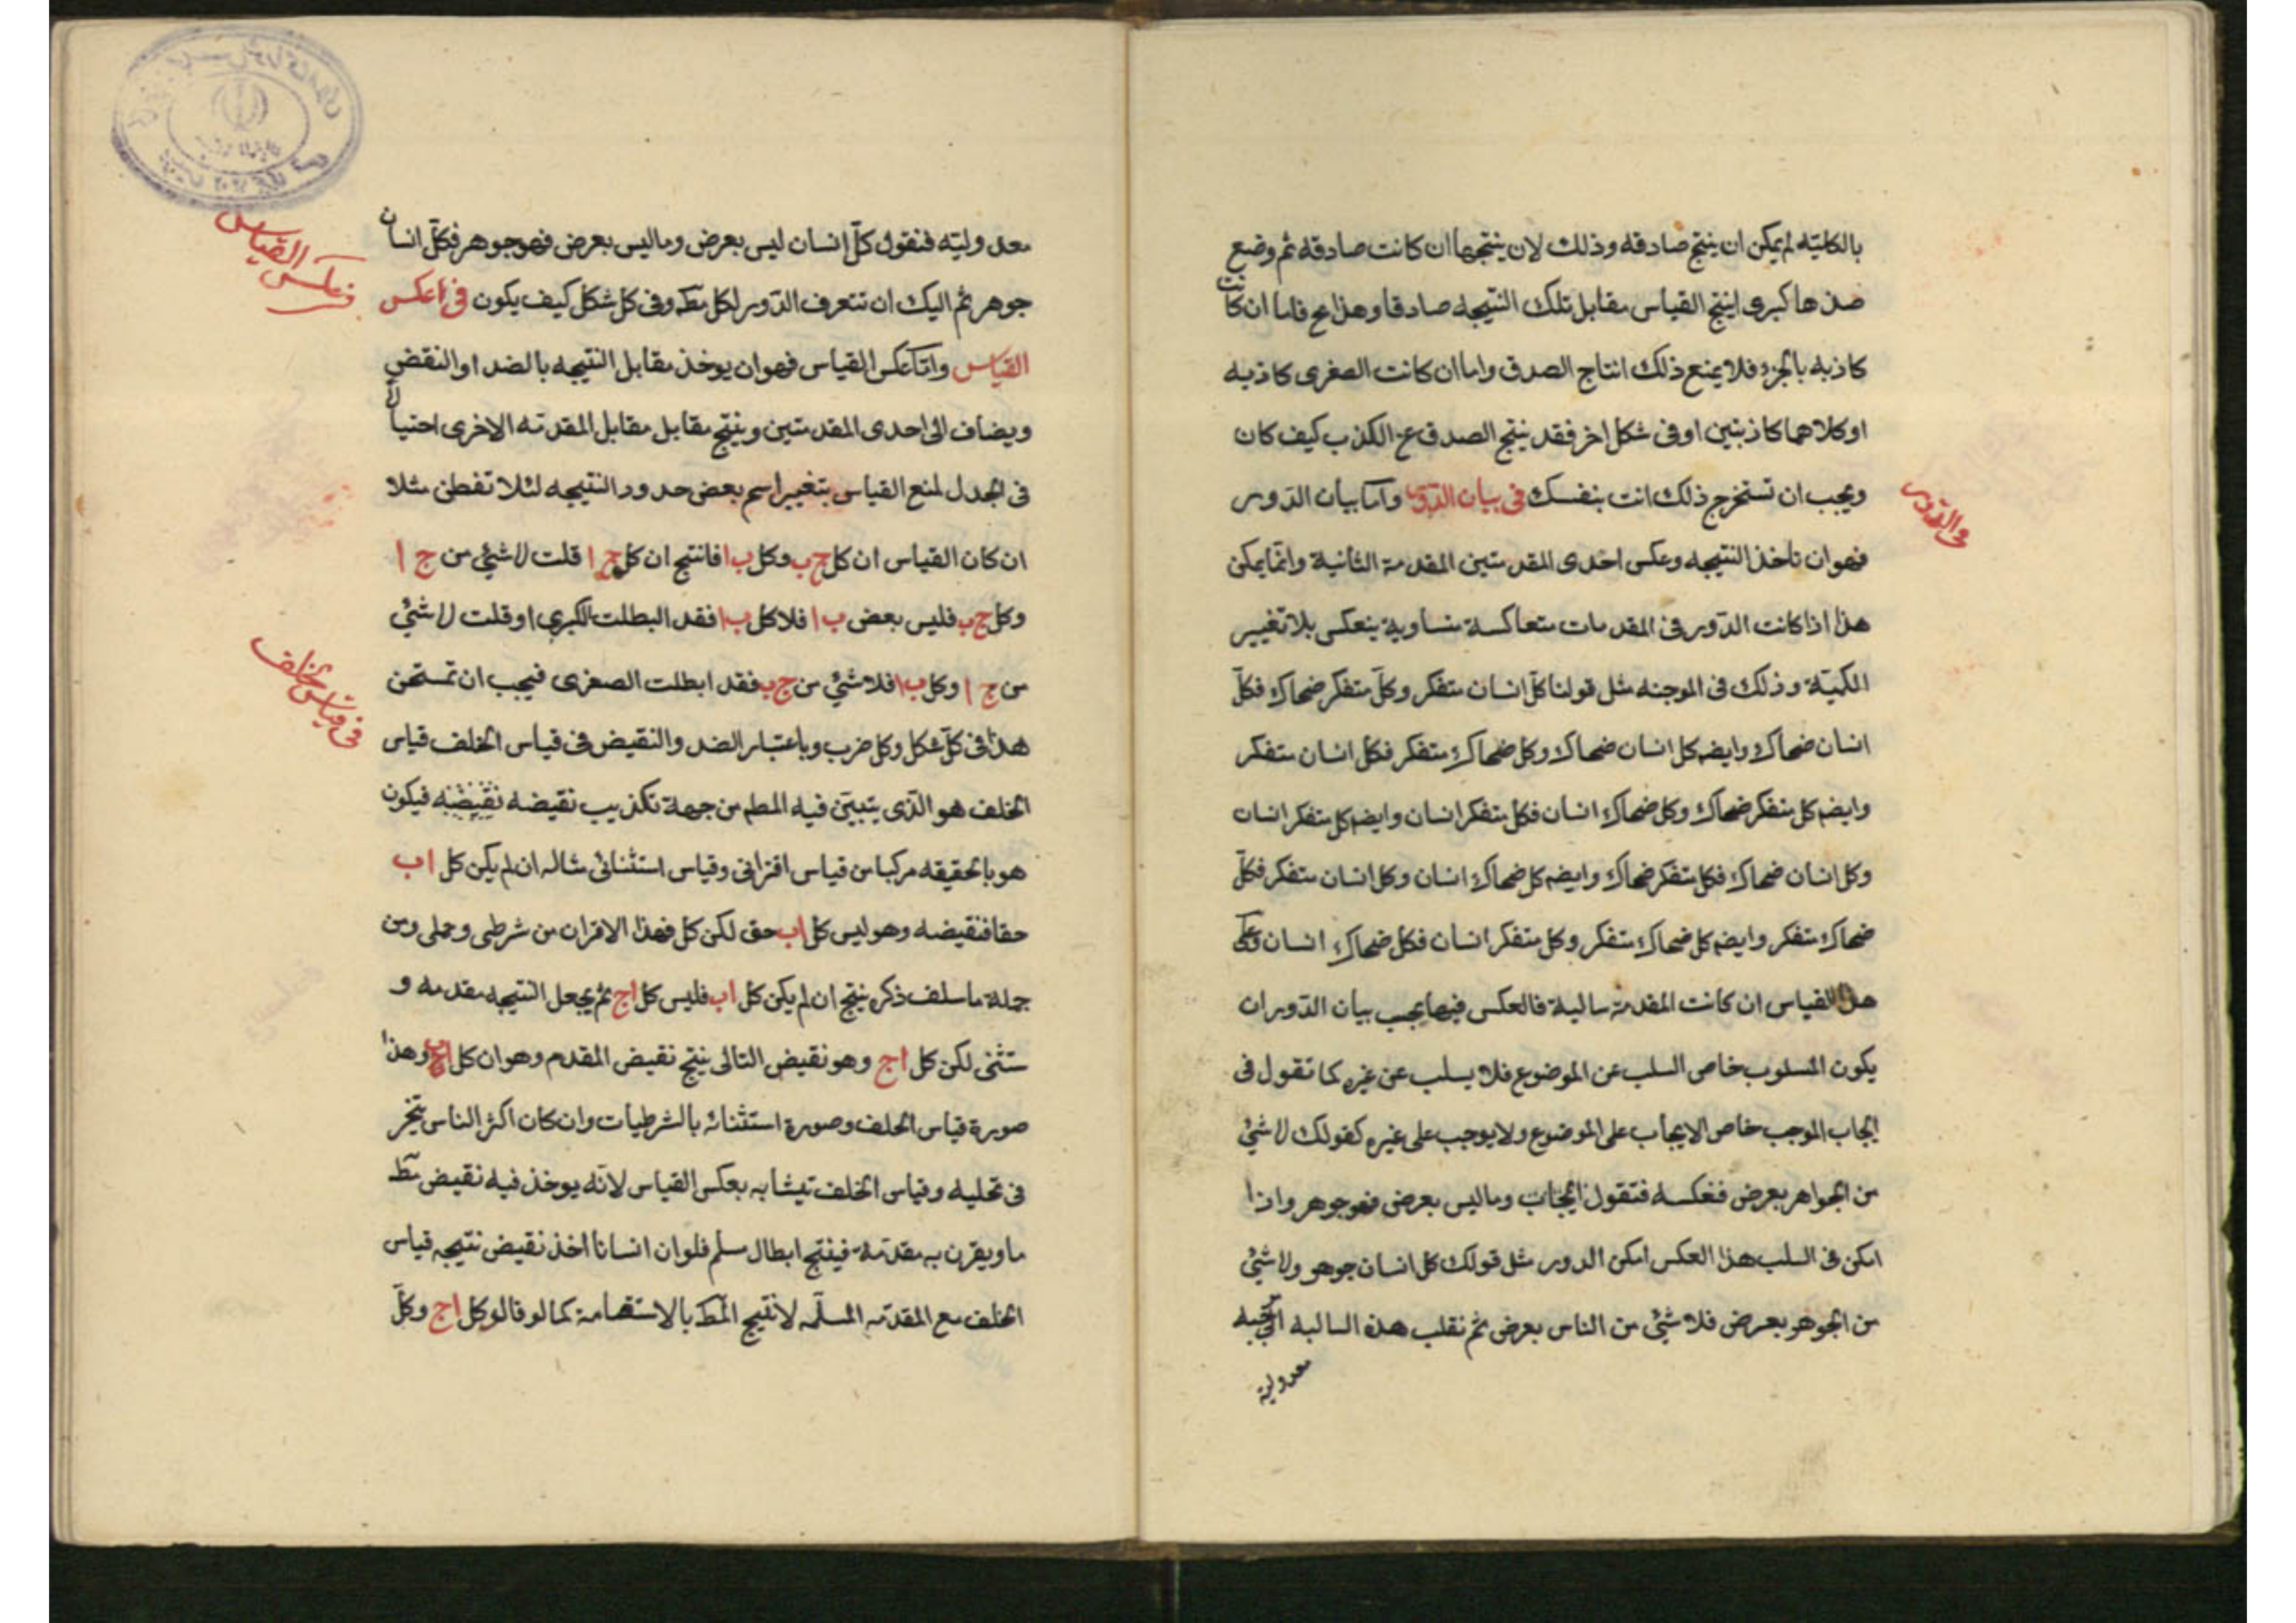 بالكليّه لم يمكن ان ينتج صادقه وذلك لان ينتجها ان كانت صادقه ثم وضع
ضدها كبرى اينتج القياس مقابل تلك النتيجه صادقا وهذا مح فاما ان كانت
كاذبه بالجزء فلا يمنع ذلك انتاج الصدق واما ان كانت الصغرى كاذبه
او كلاهما كاذبتين او فى شكل اخر فقد ينتج الصدق عن الكذب كيف كان
ويجب ان تستخرج ذلك انت بنفسك فى بيان الدّور وامّا بيان الدّور
فى الدّور
فهو ان تاخذ النتيجه وعكس احدى المقدمتين المقدمة الثانية وانّما يمكن
هذا اذا كانت الدّور فى المقدمات متعاكسة متساوية ينعكس بلا تغيير
الكميّة وذلك فى الموجبه مثل قولنا كلّ انسان متفكر وكلّ متفكر ضحاك فكلّ
انسان ضحاك وايضه كل انسان ضحاك وكل ضحاك متفكر فكل انسان متفكر
وايضه كل متفكر ضحاك وكل ضحاك انسان فكل متفكر انسان وايضه كل متفكر انسان
وكل انسان ضحاك فكل متفكر ضحاك وايضه كل ضحاك انسان وكل انسان متفكر فكلّ
ضحاك متفكر وايضه كل ضحاك متفكر وكل متفكر انسان فكل ضحاك انسان وعلى
هذا القياس ان كانت المقدمة سالبة فالعكس فيها يجب بيان الدّور ان
يكون المسلوب خاص السلب عن الموضوع فلا يسلب عن غيره كما تقول فى
ايجاب الموجب خاص الايجاب على الموضوع ولا يوجب على غيره كقولك لا شئ
من الجواهر بعرض فعكسه فتقول ايجاب وماليس بعرض فهو جوهر واذا
امكن فى السلب هذا العكس امكن الدور مثل قولك كل انسان جوهو ولا شئ
من الجوهو بعرض فلا شئ من الناس بعرض ثم نقلب هذه السالبه
معدولية
معدوليّه فنقول كلّ انسان ليس بعرض وماليس بعرض فهو جوهر فكلّ انسان
فى عكس القياس
جوهر ثم اليك ان تتعرف الدّور لكل مط وفى كل شكل كيف يكون فى عكس
القياس وامّا عكس القياس فهو ان يوخذ مقابل النتيجه بالضد او النقض
ويضاف الى احدى المقدمتين وينتج مقابل مقابل المقدمّه الاخرى احتيالا
فى الجدل لمنع القياس بتغيير اسم بعض حدود النتيجه لئلا تفطن مثلا
ان كان القياس ان كل ج ب وكل ب ا فانتج ان كل ج ا قلت لا شئ من ج ا
وكل ج ب فليس بعض ب ا فلا كل ب ا فقد ابطلت الكبرى او قلت لا شئ
من ج ا وكل ب ا فلا شئ من ج ب فقد ابطلت الصغرى فيجب ان تمتحن
فى قياس الخلف
هذا فى كلّ شكل وكل ضرب وباعتبار الضد والنقيض فى قياس الخلف قياس
الخلف هو الّذى يتبيّن فيه المط من جهة تكذيب نقيضه نقيضه فيكون
هو بالحقيقه مركبا من قياس اقترانى وقياس استثنائى مثاله ان لم يكن كل ا ب
حقا فنقيضه وهو ليس كل ا ب حق لكن كل فهذا الاقتران من شرطى وحملى ومن
جملة ما سلف ذكره ينتج ان لم يكن كل ا ب فليس كل ا ج ثم يجعل النتيجه مقدمه و
ستثنى لكن كل ا ج وهو نقيض التالى ينتج نقيض المقدم وهو ان كل ا ب وهذا
صورة قياس الخلف وصورة استثنائه بالشرطيات وان كان اكثر الناس يتحير
فى تحليه وقياس الخلف يتشابه بعكس القياس لانّه يوخذ فيه نقيض مط
ما ويقرن به مقدمّة فينتج ابطال مسلم فلو ان انسانا اخذ نقيض نتيجه قياس
الخلف مع المقدّمه المسلّمه لانتيج المط بالاستقامة كما لو قالو كل ا ج وكلّ